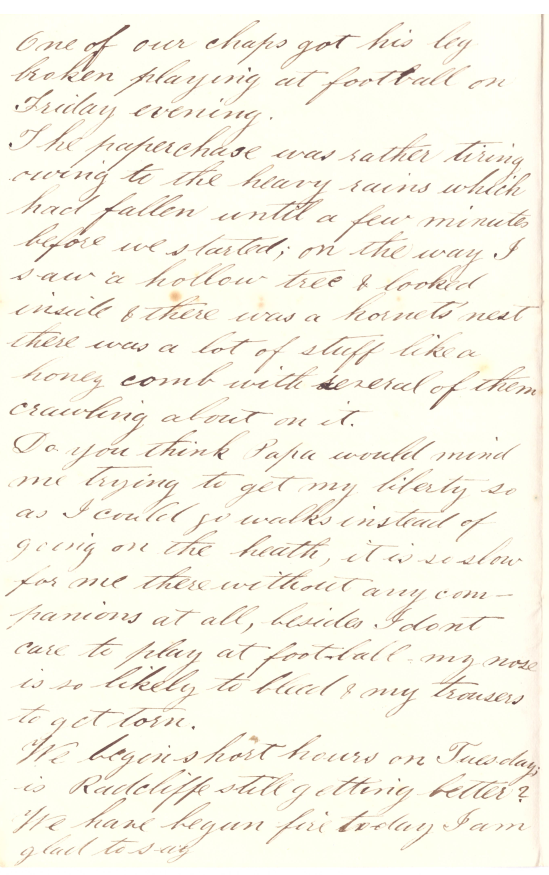 One of our chaps got his leg
broken playing at football on
Friday evening.
The paperchase was rather tiring
owing to the heavy rains which
had fallen until a few minutes
before we started; on the way I
saw a hollow tree & looked
inside & there was a hornets' nest
there was a lot of stuff like a
honey comb with several of them
crawling about on it.
Do you think Papa would mind
me trying to get my liberty so
as I could go walks instead of
going on the heath, it is so slow
for me there without any com-
panions at all, besides I dont
care to play at foot-ball - my nose
is so likely to bleed & my trousers
to get torn.
We begin short hours on Tuesday;
is Radcliffe still getting better?
We have begun fire today I am
glad to say